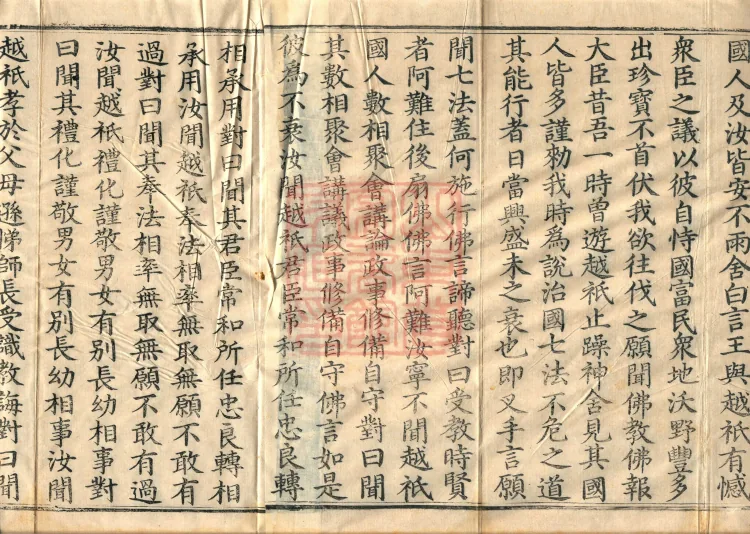 國人及汝皆安不雨舍白言王與越祇有憾
衆臣之議以彼自恃國富民衆地沃野豐多
出珍寶不首伏我欲往伐之願聞佛教佛報
大臣昔吾一時曾遊越祇止躁神舍見其國
人皆多謹勑我時為說治國七法不危之道
其能行者日當興盛未之衰也即叉手言願
聞七法蓋何施行佛言諦聽對曰受教時賢
者阿難住後扇佛佛言阿難汝寧不聞越祇
國人數相聚會講論政事修備自守對曰聞
其數相聚會講議政事修備自守佛言如是
彼為不衰汝聞越祇君臣常和所任忠良轉
相承用對曰聞其君臣常和所任忠良轉相
承用汝聞越祇奉法相率無取無願不敢有
過對曰聞其奉法相率無取無願不敢有過
汝聞越祇禮化謹敬男女有別長幼相事對
曰聞其禮化謹敬男女有別長幼相事汝聞
越祇孝於父母遜悌師長受識教誨對曰聞